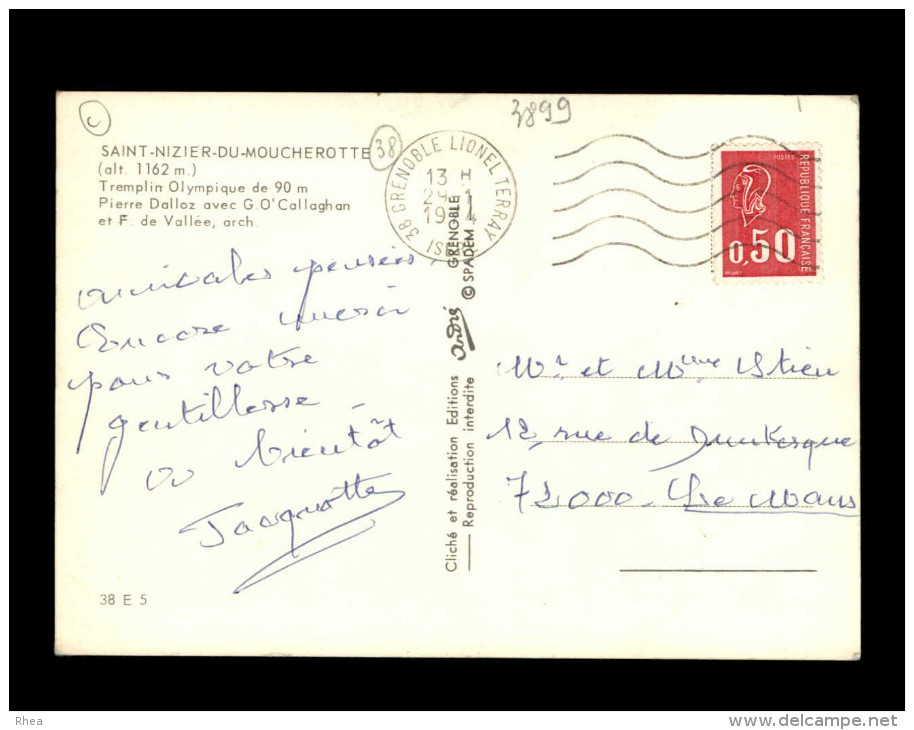 c
3899
38
SAINT-NIZIER-DU-MOUCHEROTTE
(alt. 1162 m.)
Tremplin Olympique de 90 m
Pierre Dalloz avec G. O'Callaghan
et F. de Vallée, arch.
38 GRENOBLE LIONEL TERRAY
13 H
29-1
19 4
ISERE
POSTES
REPUBLIQUE FRANÇAISE
0,50
amicales pensées.
Encore merci
pour votre
gentillesse -
à bientôt
Jacquotte
38 E 5
Cliché et réalisation Editions André GRENOBLE
Reproduction interdite © SPADEM
Mr. et Mme
12, rue de Dunkerque
72000 - Le Mans
Rhea
www.delcampe.net